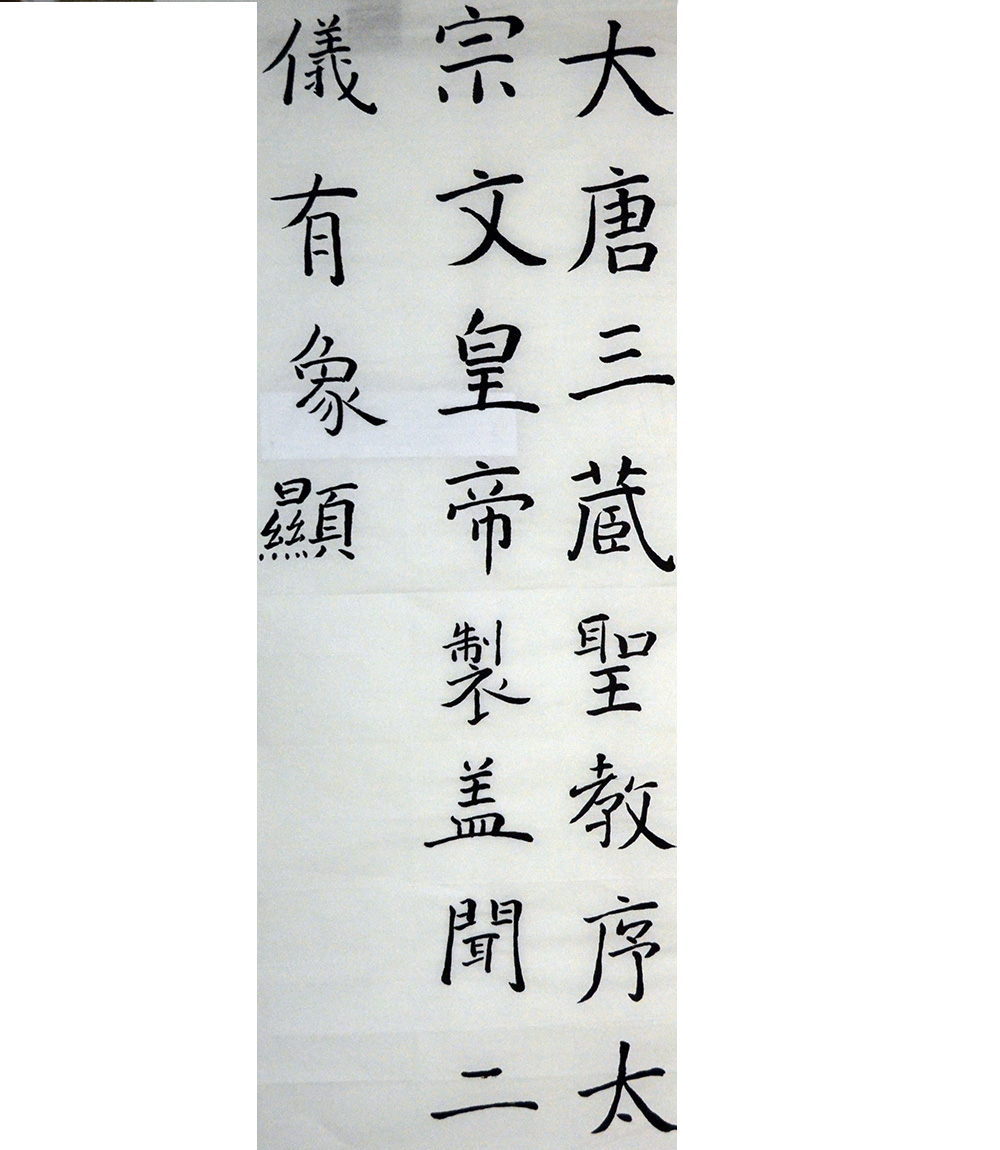 大唐三蔵聖教序太
宗文皇帝製盖聞二
儀有象顯